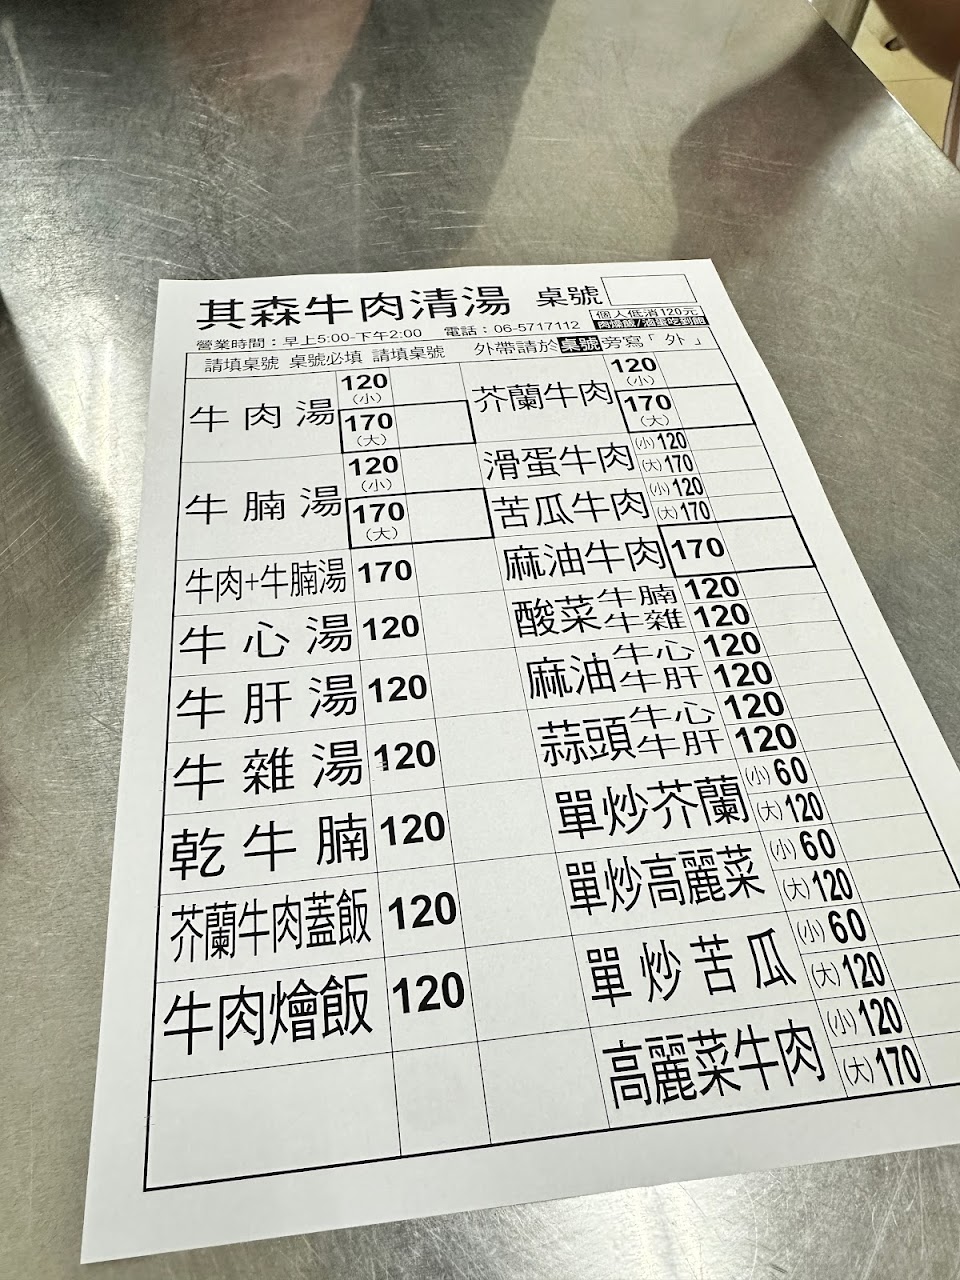 其森牛肉清湯 桌號
個人低消120元
肉燥飯/滷蛋吃到飽
營業時間：早上5:00-下午2:00 電話：06-5717112
請填桌號 桌號必填 請填桌號 外帶請於桌號旁寫「外」
牛肉湯 120 (小)
170 (大)
牛腩湯 120 (小)
170 (大)
牛肉+牛腩湯 170
牛心湯 120
牛肝湯 120
牛雜湯 120
乾牛腩 120
芥蘭牛肉蓋飯 120
牛肉燴飯 120
芥蘭牛肉 120 (小)
170 (大)
滑蛋牛肉 (小)120
(大)170
苦瓜牛肉 (小)120
(大)170
麻油牛肉 170
酸菜牛腩 120
牛雜 120
麻油牛心 120
牛肝 120
蒜頭牛心 120
牛肝 120
單炒芥蘭 (小)60
(大)120
單炒高麗菜 (小)60
(大)120
單炒苦瓜 (小)60
(大)120
高麗菜牛肉 (小)120
(大)170